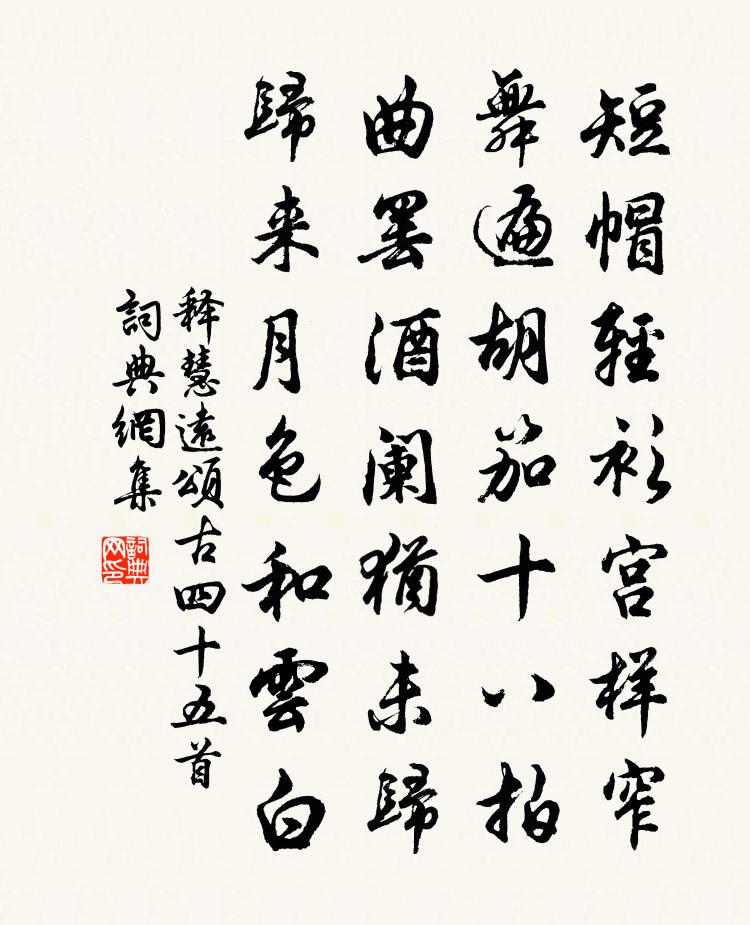 短帽輕衫宫样窄
舞遍胡笳十八拍
曲罢酒阑猶未歸
歸来月色和雲白
释慧遠頌古四十五首
詞典網集
詞典网印